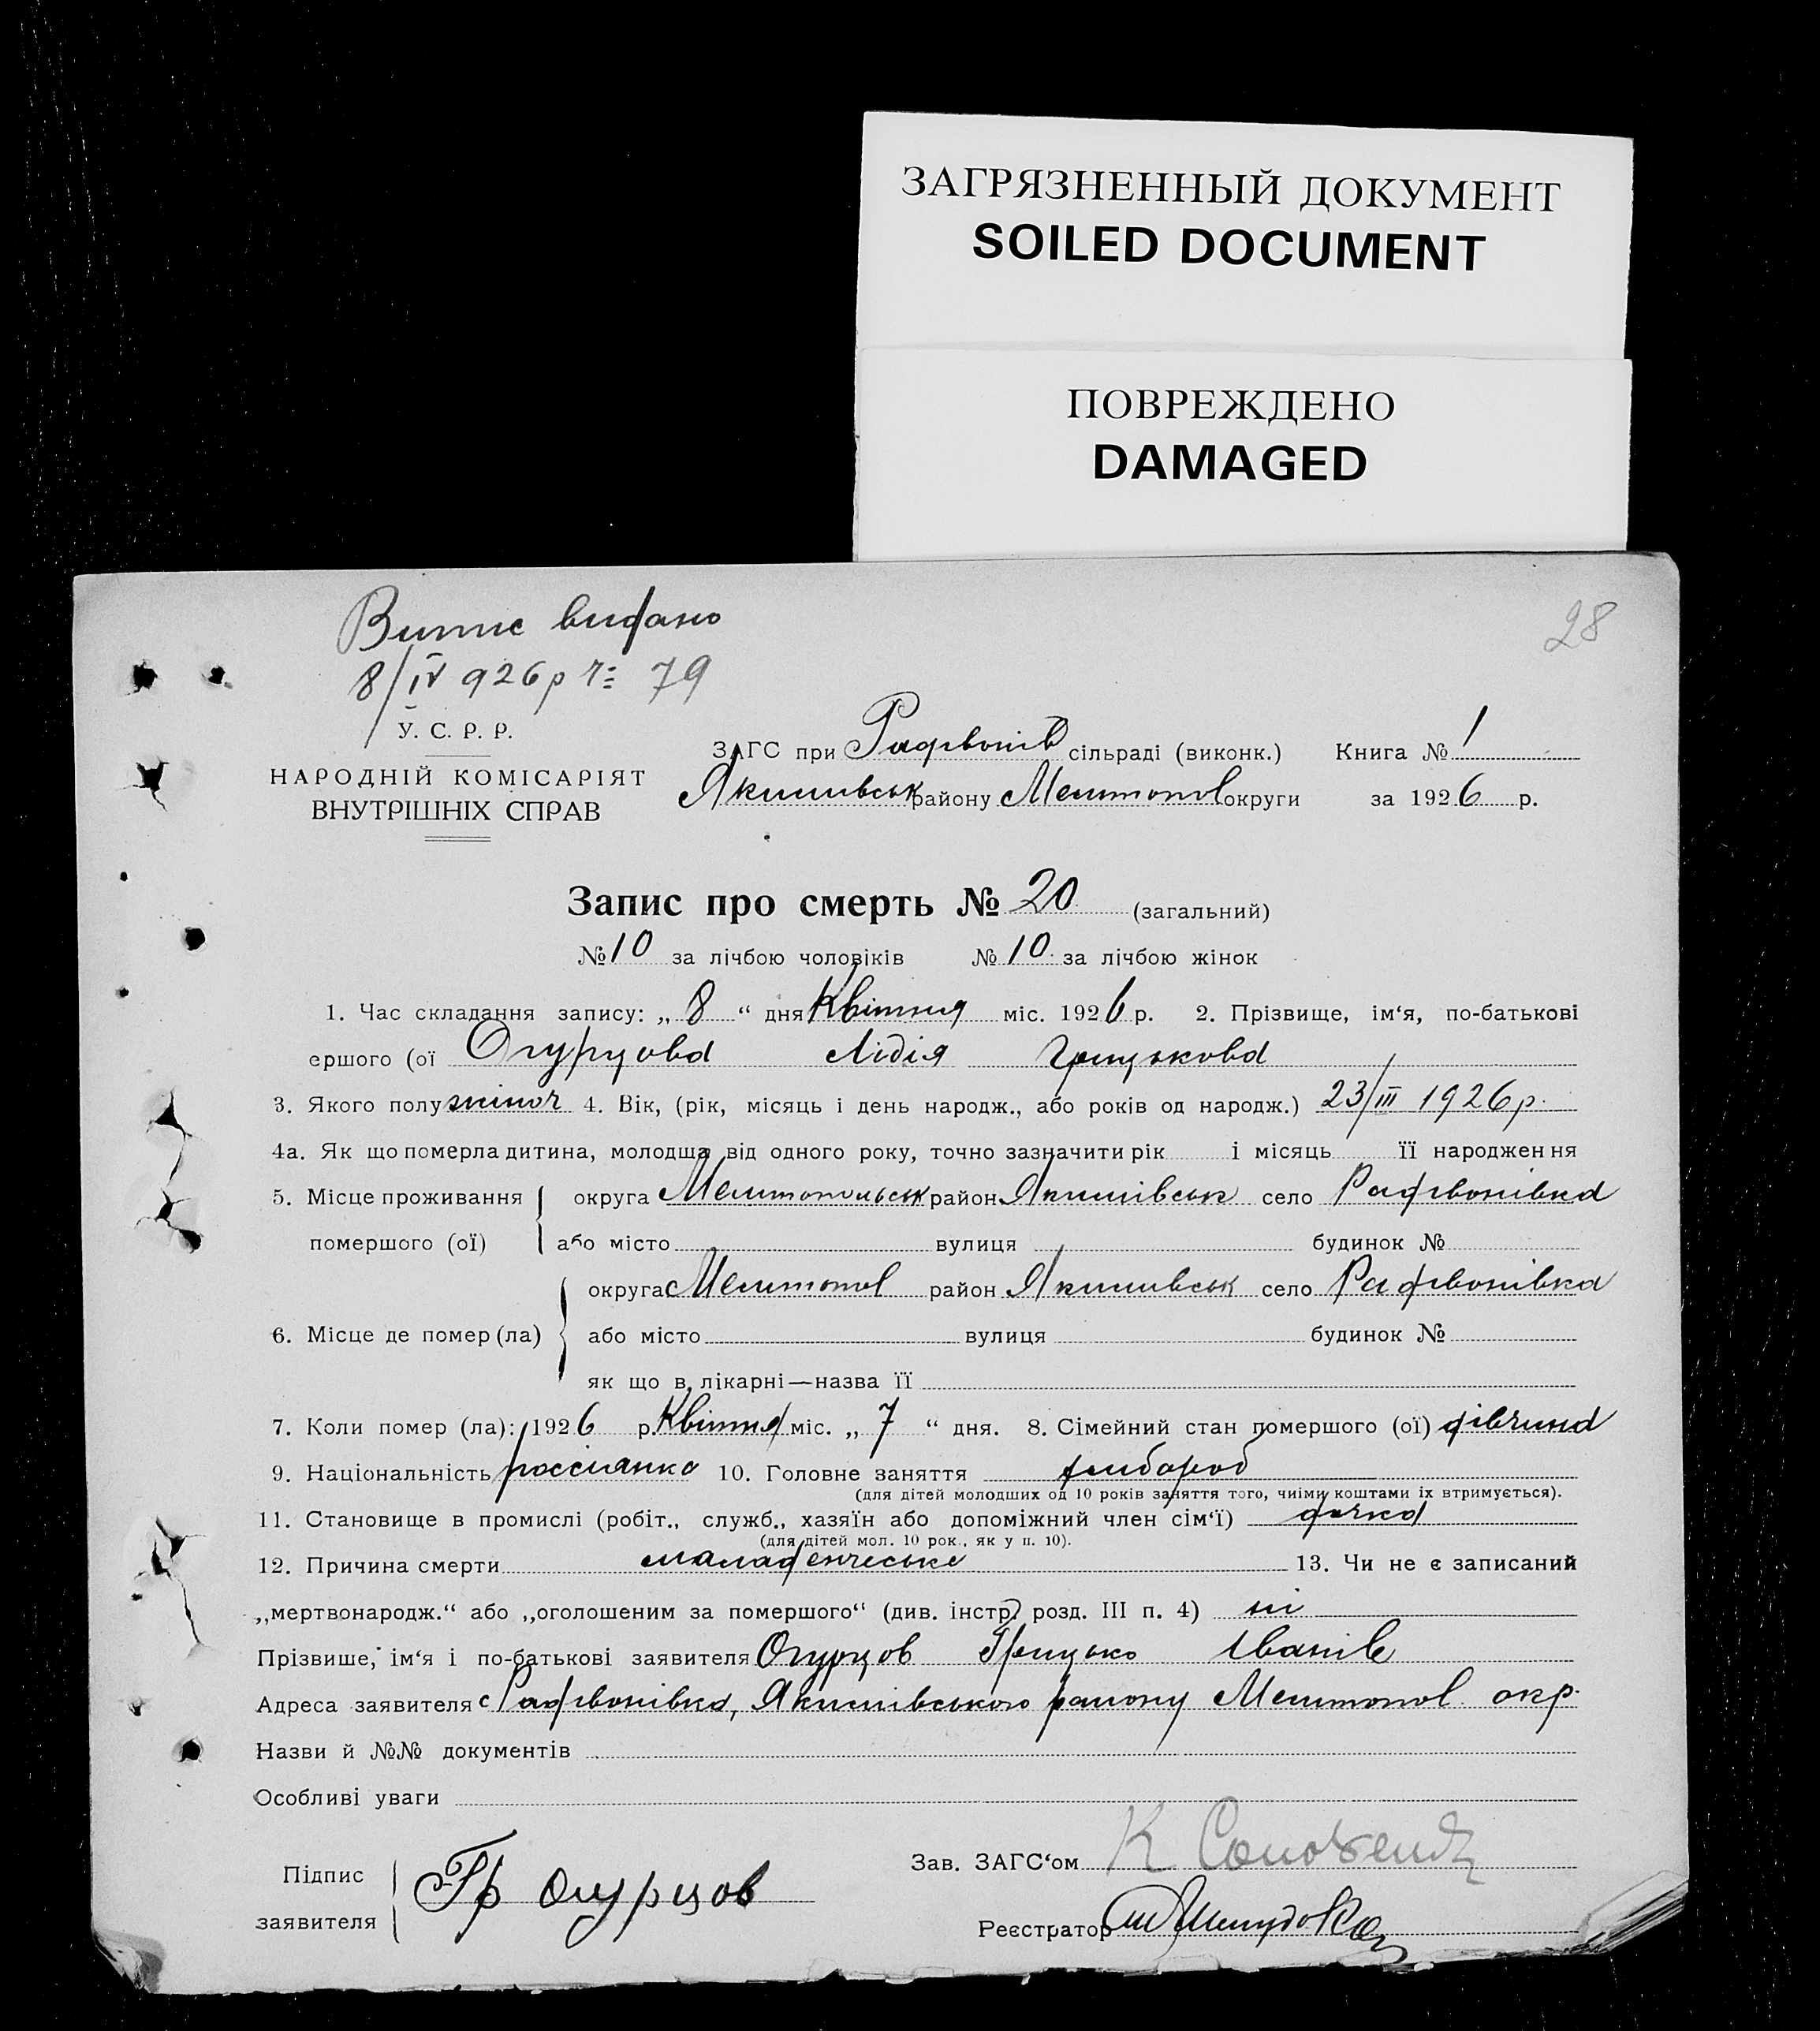 ЗАГРЯЗНЕННЫЙ ДОКУМЕНТ
SOILED DOCUMENT
ПОВРЕЖДЕНО
DAMAGED
Випис видано
28
8/IV 926р № 79
У. С. Р. Р.
НАРОДНІЙ КОМІСАРІЯТ
ВНУТРІШНІХ СПРАВ
ЗАГС при Радівонів сільраді (виконк.) Книга № 1
Якимівськ району Мелитопол округи за 1926 р.
Запис про смерть № 20 (загальний)
№ 10 за лічбою чоловіків № 10 за лічбою жінок
1. Час складання запису: „ 8 “ дня Квітня міс. 1926 р. 2. Прізвище, ім‘я, по-батькові
ершого (ої Огурцова Лідія Грицькова
3. Якого полу жіноч 4. Вік, (рік, місяць і день народж., або років од народж.) 23/III 1926 р.
4а. Як що померла дитина, молодша від одного року, точно зазначити рік і місяць її народження
5. Місце проживання округа Мелитопольськ район Якимівськ село Радівонівка
помершого (ої) або місто вулиця будинок №
округа Мелитопол район Якимівськ село Радівонівка
6. Місце де помер (ла) або місто вулиця будинок №
як що в лікарні—назва її
7. Коли помер (ла): 1926 р. Квітня міс. „ 7 “ дня. 8. Сімейний стан помершого (ої) дівчина
9. Національність россіянка 10. Головне заняття хлибороб
(для дітей молодших од 10 років заняття того, чиїми коштами їх втримується).
11. Становище в промислі (робіт., служб., хазяїн або допоміжний член сім‘ї) дочка
(для дітей мол. 10 рок., як у п. 10).
12. Причина смерти младенческе 13. Чи не є записаний
„мертвонародж.“ або „оголошеним за помершого“ (див. інстр. розд. III п. 4) ні
Прізвише, ім‘я і по-батькові заявителя Огурцов Грицько Іванів
Адреса заявителя с Радівонівка, Якимівського району Мелитопол. окр.
Назви й №№ документів
Особливі уваги
Підпис
заявителя
Гр Огурцов
Зав. ЗАГС‘ом К
Реєстратор